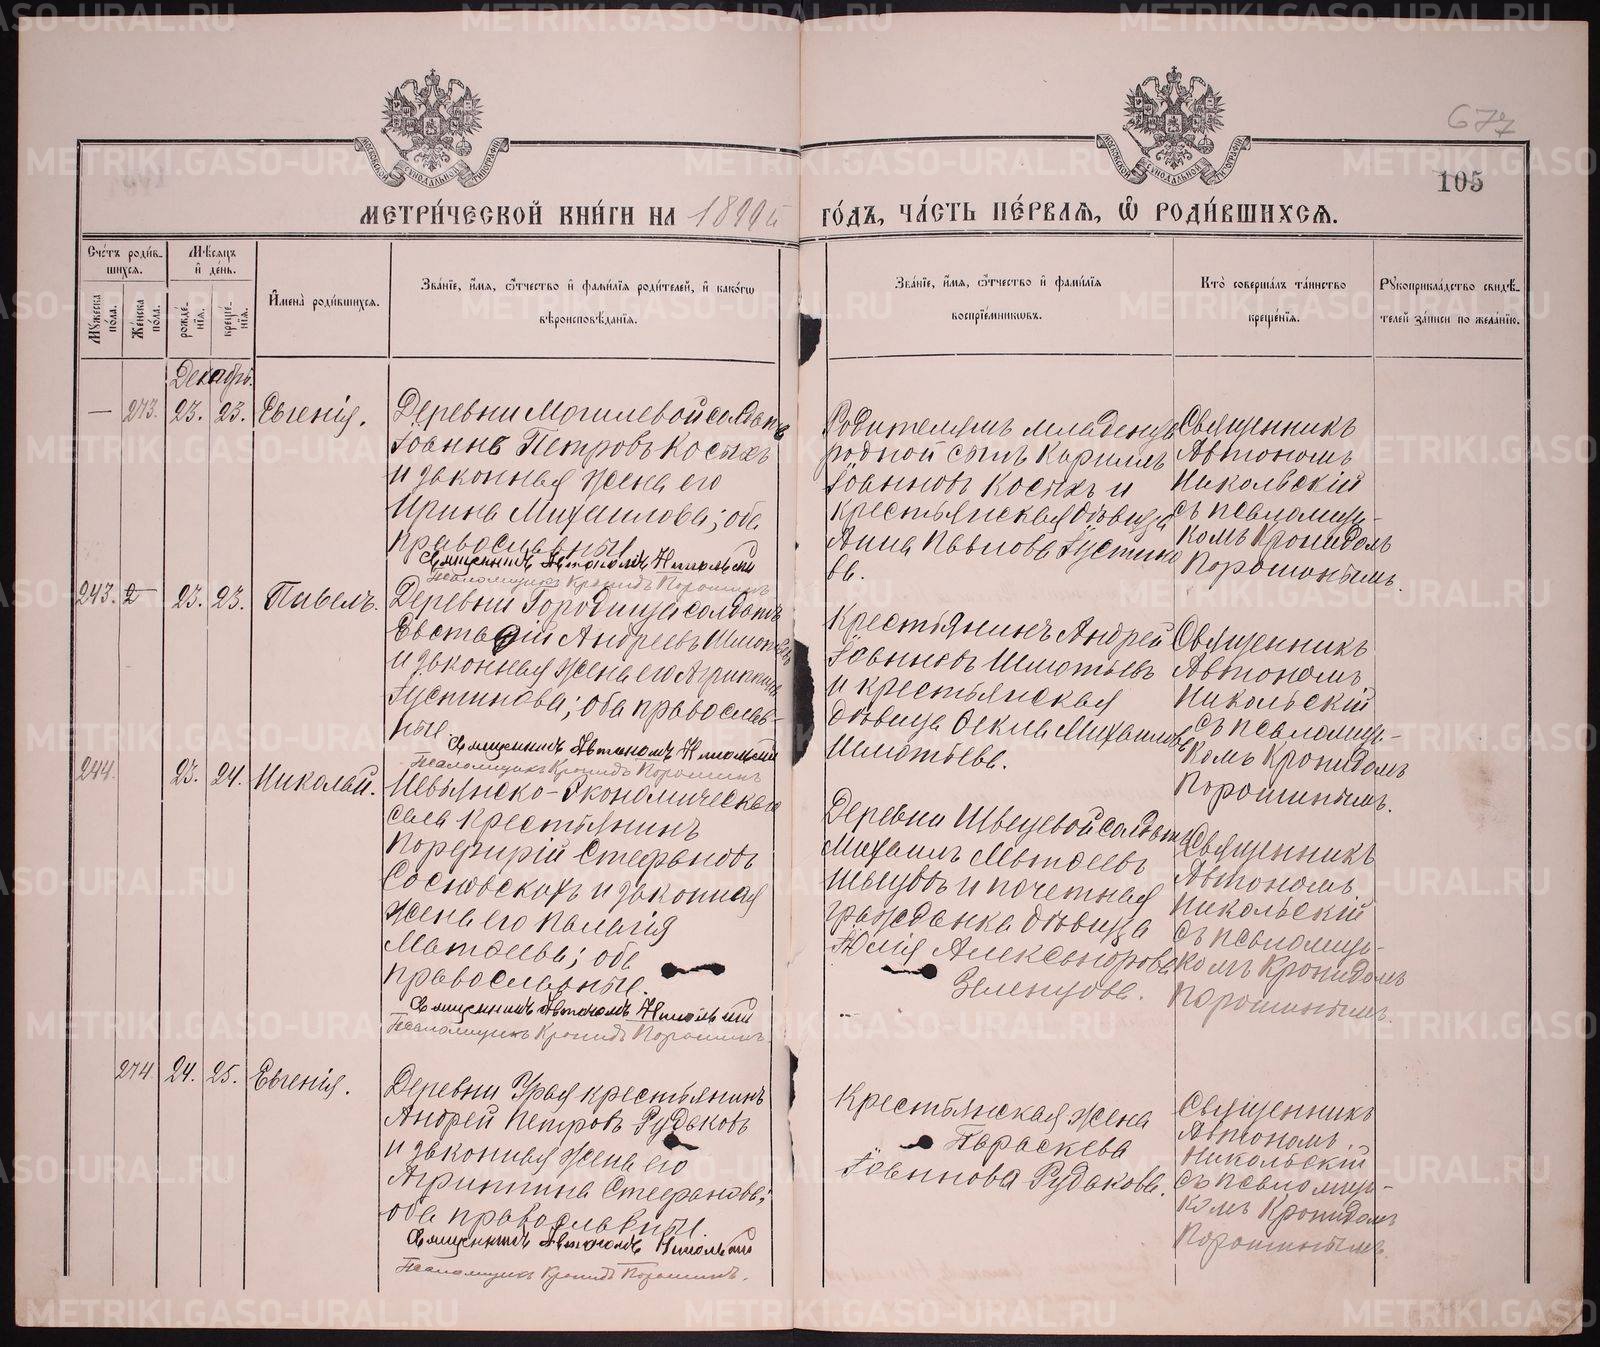 677
105
МОСКОВСКОЙ СѴНОДАЛЬНОЙ ТИПОГРАФІИ
МОСКОВСКОЙ СѴНОДАЛЬНОЙ ТИПОГРАФІИ
МЕТРИ́ЧЕСКОЙ КНИ́ГИ НА 1899й ГО́ДЪ, ЧА́СТЬ ПЕ́РВАЯ, Ѡ РОДИ́ВШИХСЯ.
Сче́тъ роди́в-
шихся.
Мѣсяцъ
и де́нь.
Мꙋжеска по́ла.
Же́нска по́ла.
рожде́нїя.
креще́нїя.
Имена̀ роди́вшихся.
Зва́нїе, и́мя, ѻ҆́тчество и фами́лїя роди́телей, и како́гѡ
вѣроисповѣ́данїя.
Зва́нїе, и́мя, ѻ҆́тчество и фами́лїя
воспрїе́мникѡвъ.
Кто̀ соверша́лъ та́инство
креще́нїя.
Рꙋкоприкла́дство свидѣ́-
телей за́писи по жела́нїю.
Декабрь.
— 273. 23. 23. Евгенія.
Деревни Могилевой солдатъ
Іоаннъ Петровъ Костыхъ
и законная жена его
Ирина Михаилова; оба
православные
Священникъ Автономъ Никольскій
Псаломщикъ Кронидъ Порошинъ
Родителямъ младенца
родной сынъ Кириллъ
Іоанновъ Костыхъ и
крестьянская дѣвица
Анна Павлова Густино
ва.
Священникъ
Автономъ
Никольскій
съ псаломщи-
комъ Кронидомъ
Порошинымъ.
243. 23. 23. Павелъ.
Деревни Городища солдатъ
Евстафій Андреевъ Шмотьевъ
и законная жена его Агрипина
Густинова; оба православ-
ные
Священникъ Автономъ Никольскій
Псаломщикъ Кронидъ Порошинъ
Крестьянинъ Андрей
Іоанновъ Шмотьевъ
и крестьянская
дѣвица Фекла Михаилова
Шмотьева.
Священникъ
Автономъ
Никольскій
съ псаломщи-
комъ Кронидомъ
Порошинымъ.
244. 23. 24. Николай.
Невьянско-Экономическаго
села крестьянинъ
Порфирій Стефановъ
Сосновскихъ и законная
жена его Палагія
Матфеева; оба
православные.
Священникъ Автономъ Никольскій
Псаломщикъ Кронидъ Порошинъ.
Деревни Швецовой солдатъ
Михаилъ Матфеевъ
Швецовъ и почетная
гражданка дѣвица
Юлія Александрова
Зеленцова.
Священникъ
Автономъ
Никольскій
съ псаломщи-
комъ Кронидомъ
Порошинымъ.
274 24. 25. Евгенія.
Деревни Урая крестьянинъ
Андрей Петровъ Рудаковъ
и законная жена его
Агриппина Стефанова;
оба православные.
Священникъ Автономъ Никольскій
Псаломщикъ Кронидъ Порошинъ.
Крестьянская жена
Параскева
Іоаннова Рудакова.
Священникъ
Автономъ
Никольскій
съ псаломщи-
комъ Кронидомъ
Порошинымъ.
METRIKI.GASO-URAL.RU